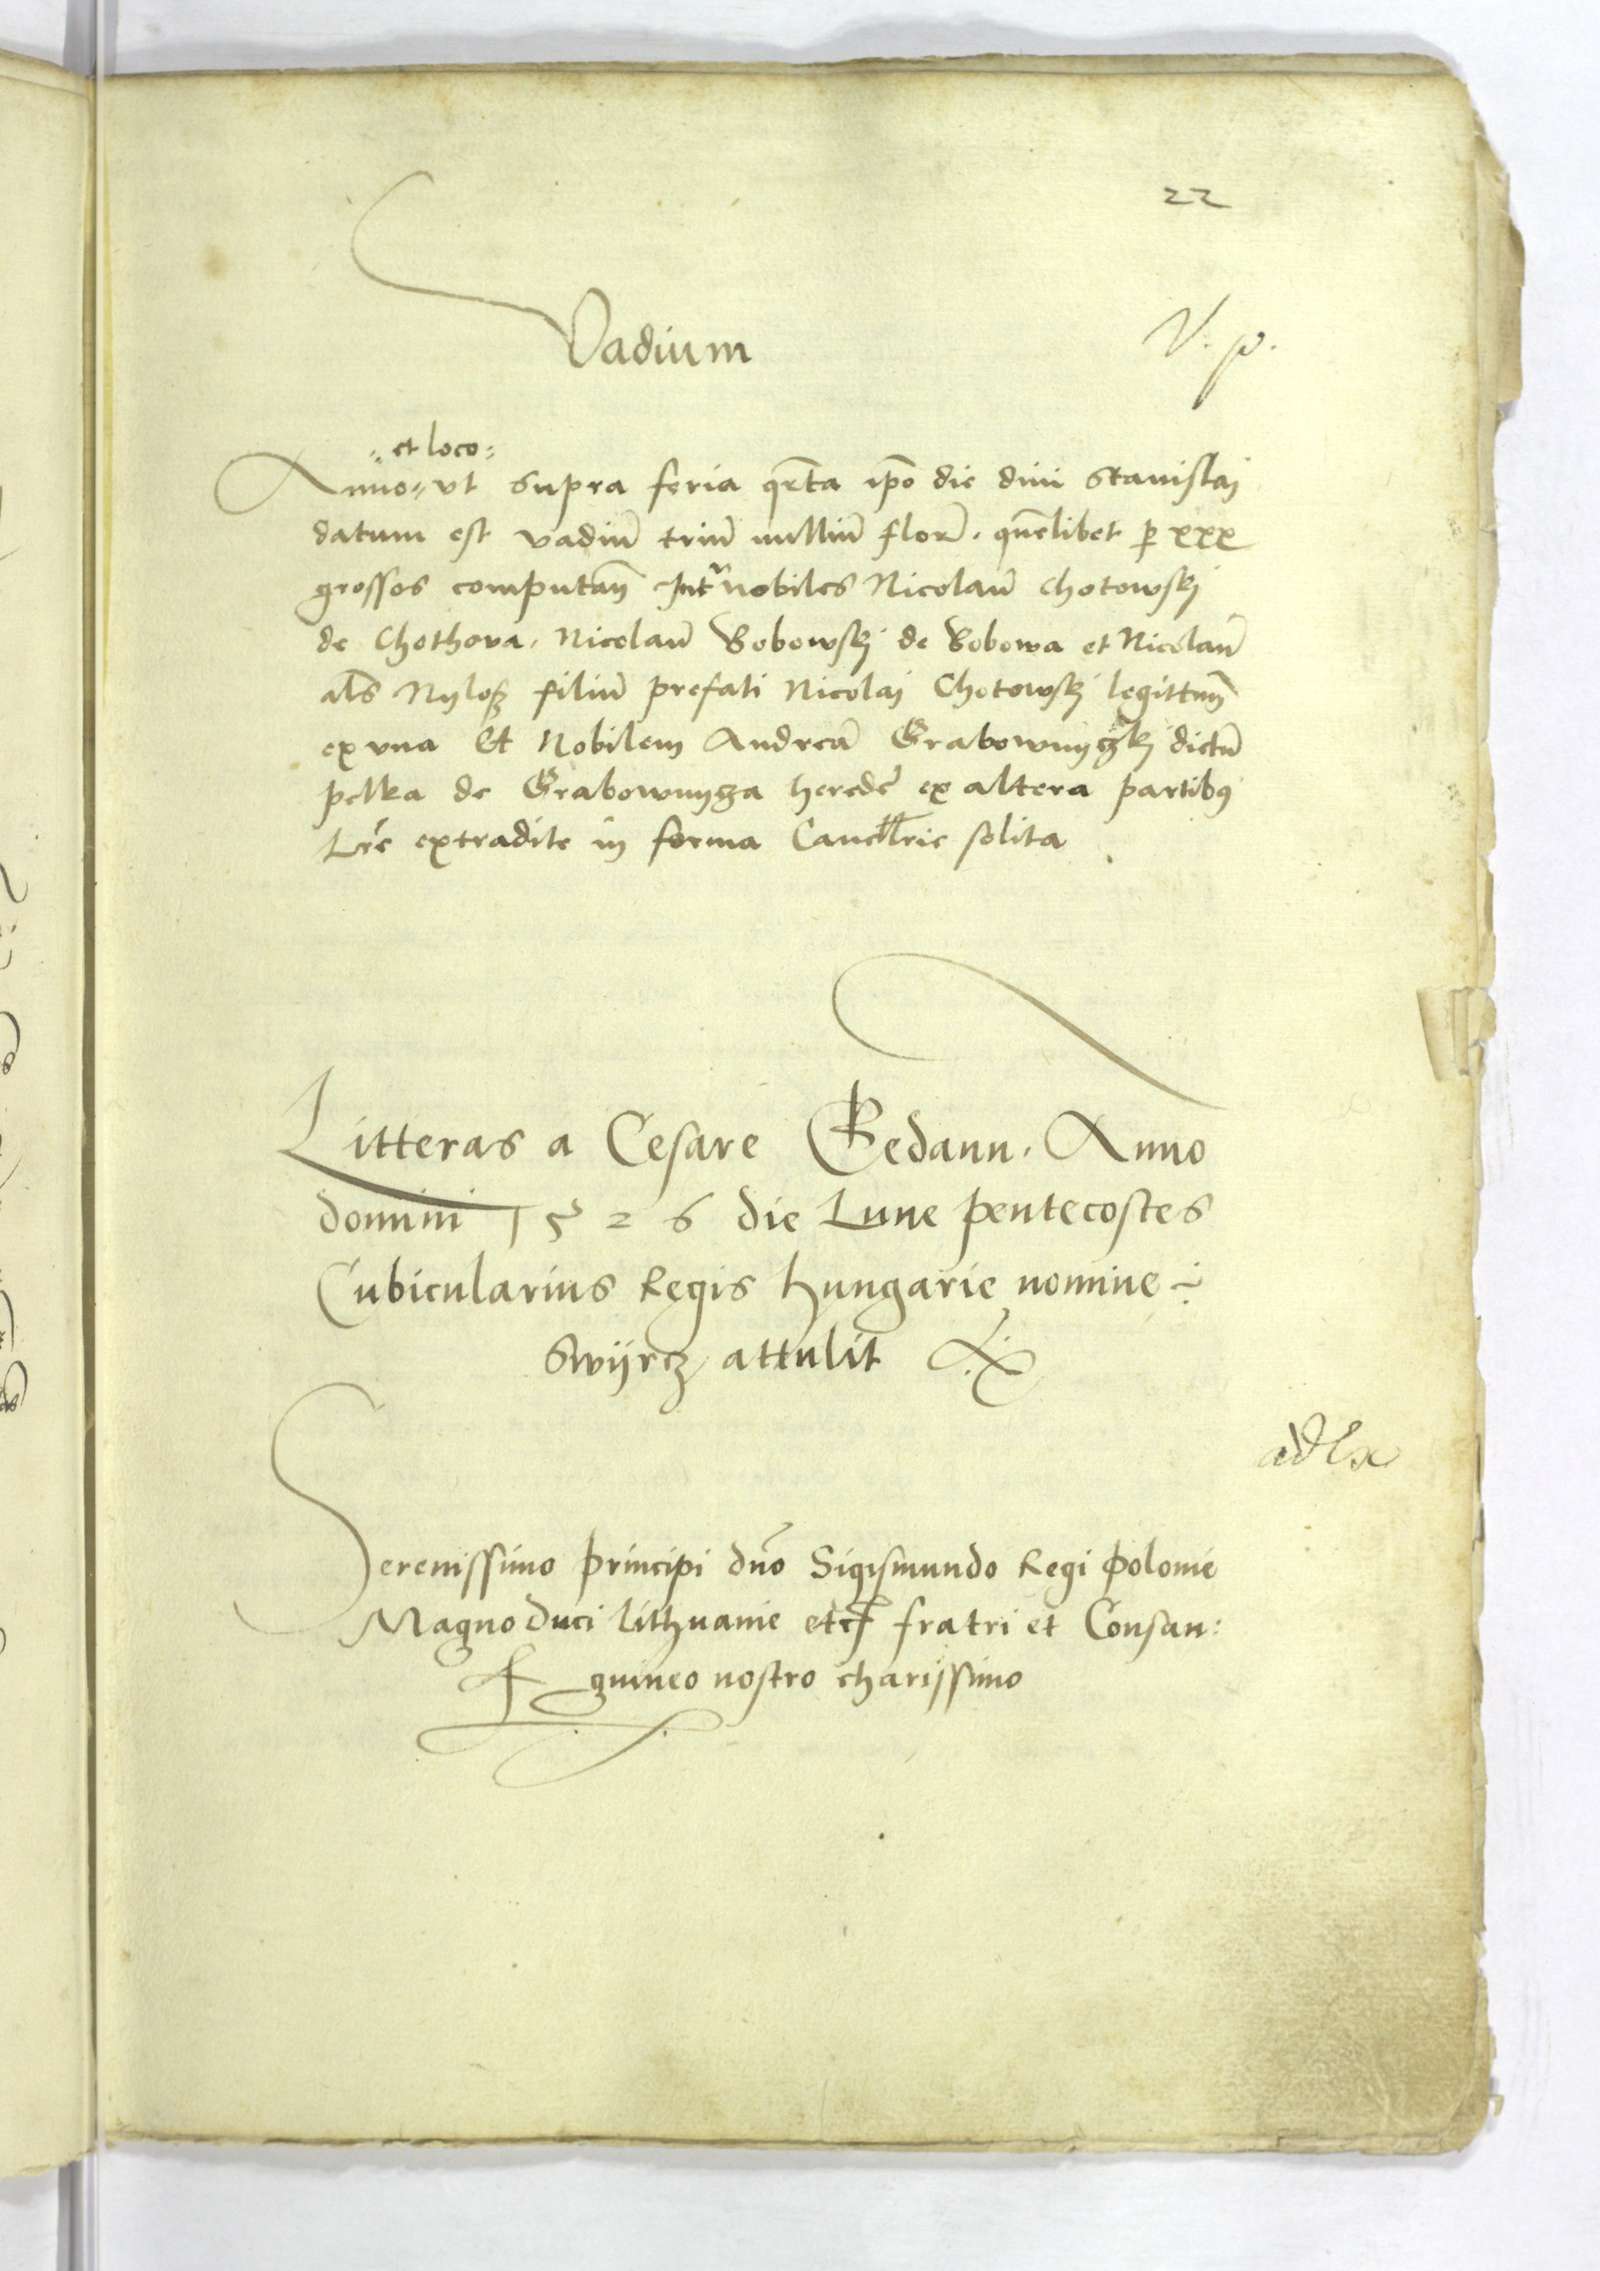 22
Vadium
V. p.
et loco
Anno ut supra feria qrta ipo die divi Stanislai
datum est vadiu triu milliu flor. quelibet p xxx
grossos computan Intr nobiles Nicolau Chotowskj
de Chothova, Nicolau Bobowskj de Bobowa et Nicolau
als Nyloß filiu prefati Nicolai Chotowskj legittim
ex una Et Nobilem Andrea Grabownyczkj dictu
pelka de Grabownycza herede ex altera partibus
Lre extradite in forma Cancllrie solita
Litteras a Cesare Gedann. Anno
domini 1526 die Lune pentecostes
Cubicularius Regis hungarie nomine
Swyrcz attulit
ad
Serenissimo principi dno Sigismundo Regi Polonie
Magno duci Lithuanie etc fratri et Consan:
guineo nostro charissimo